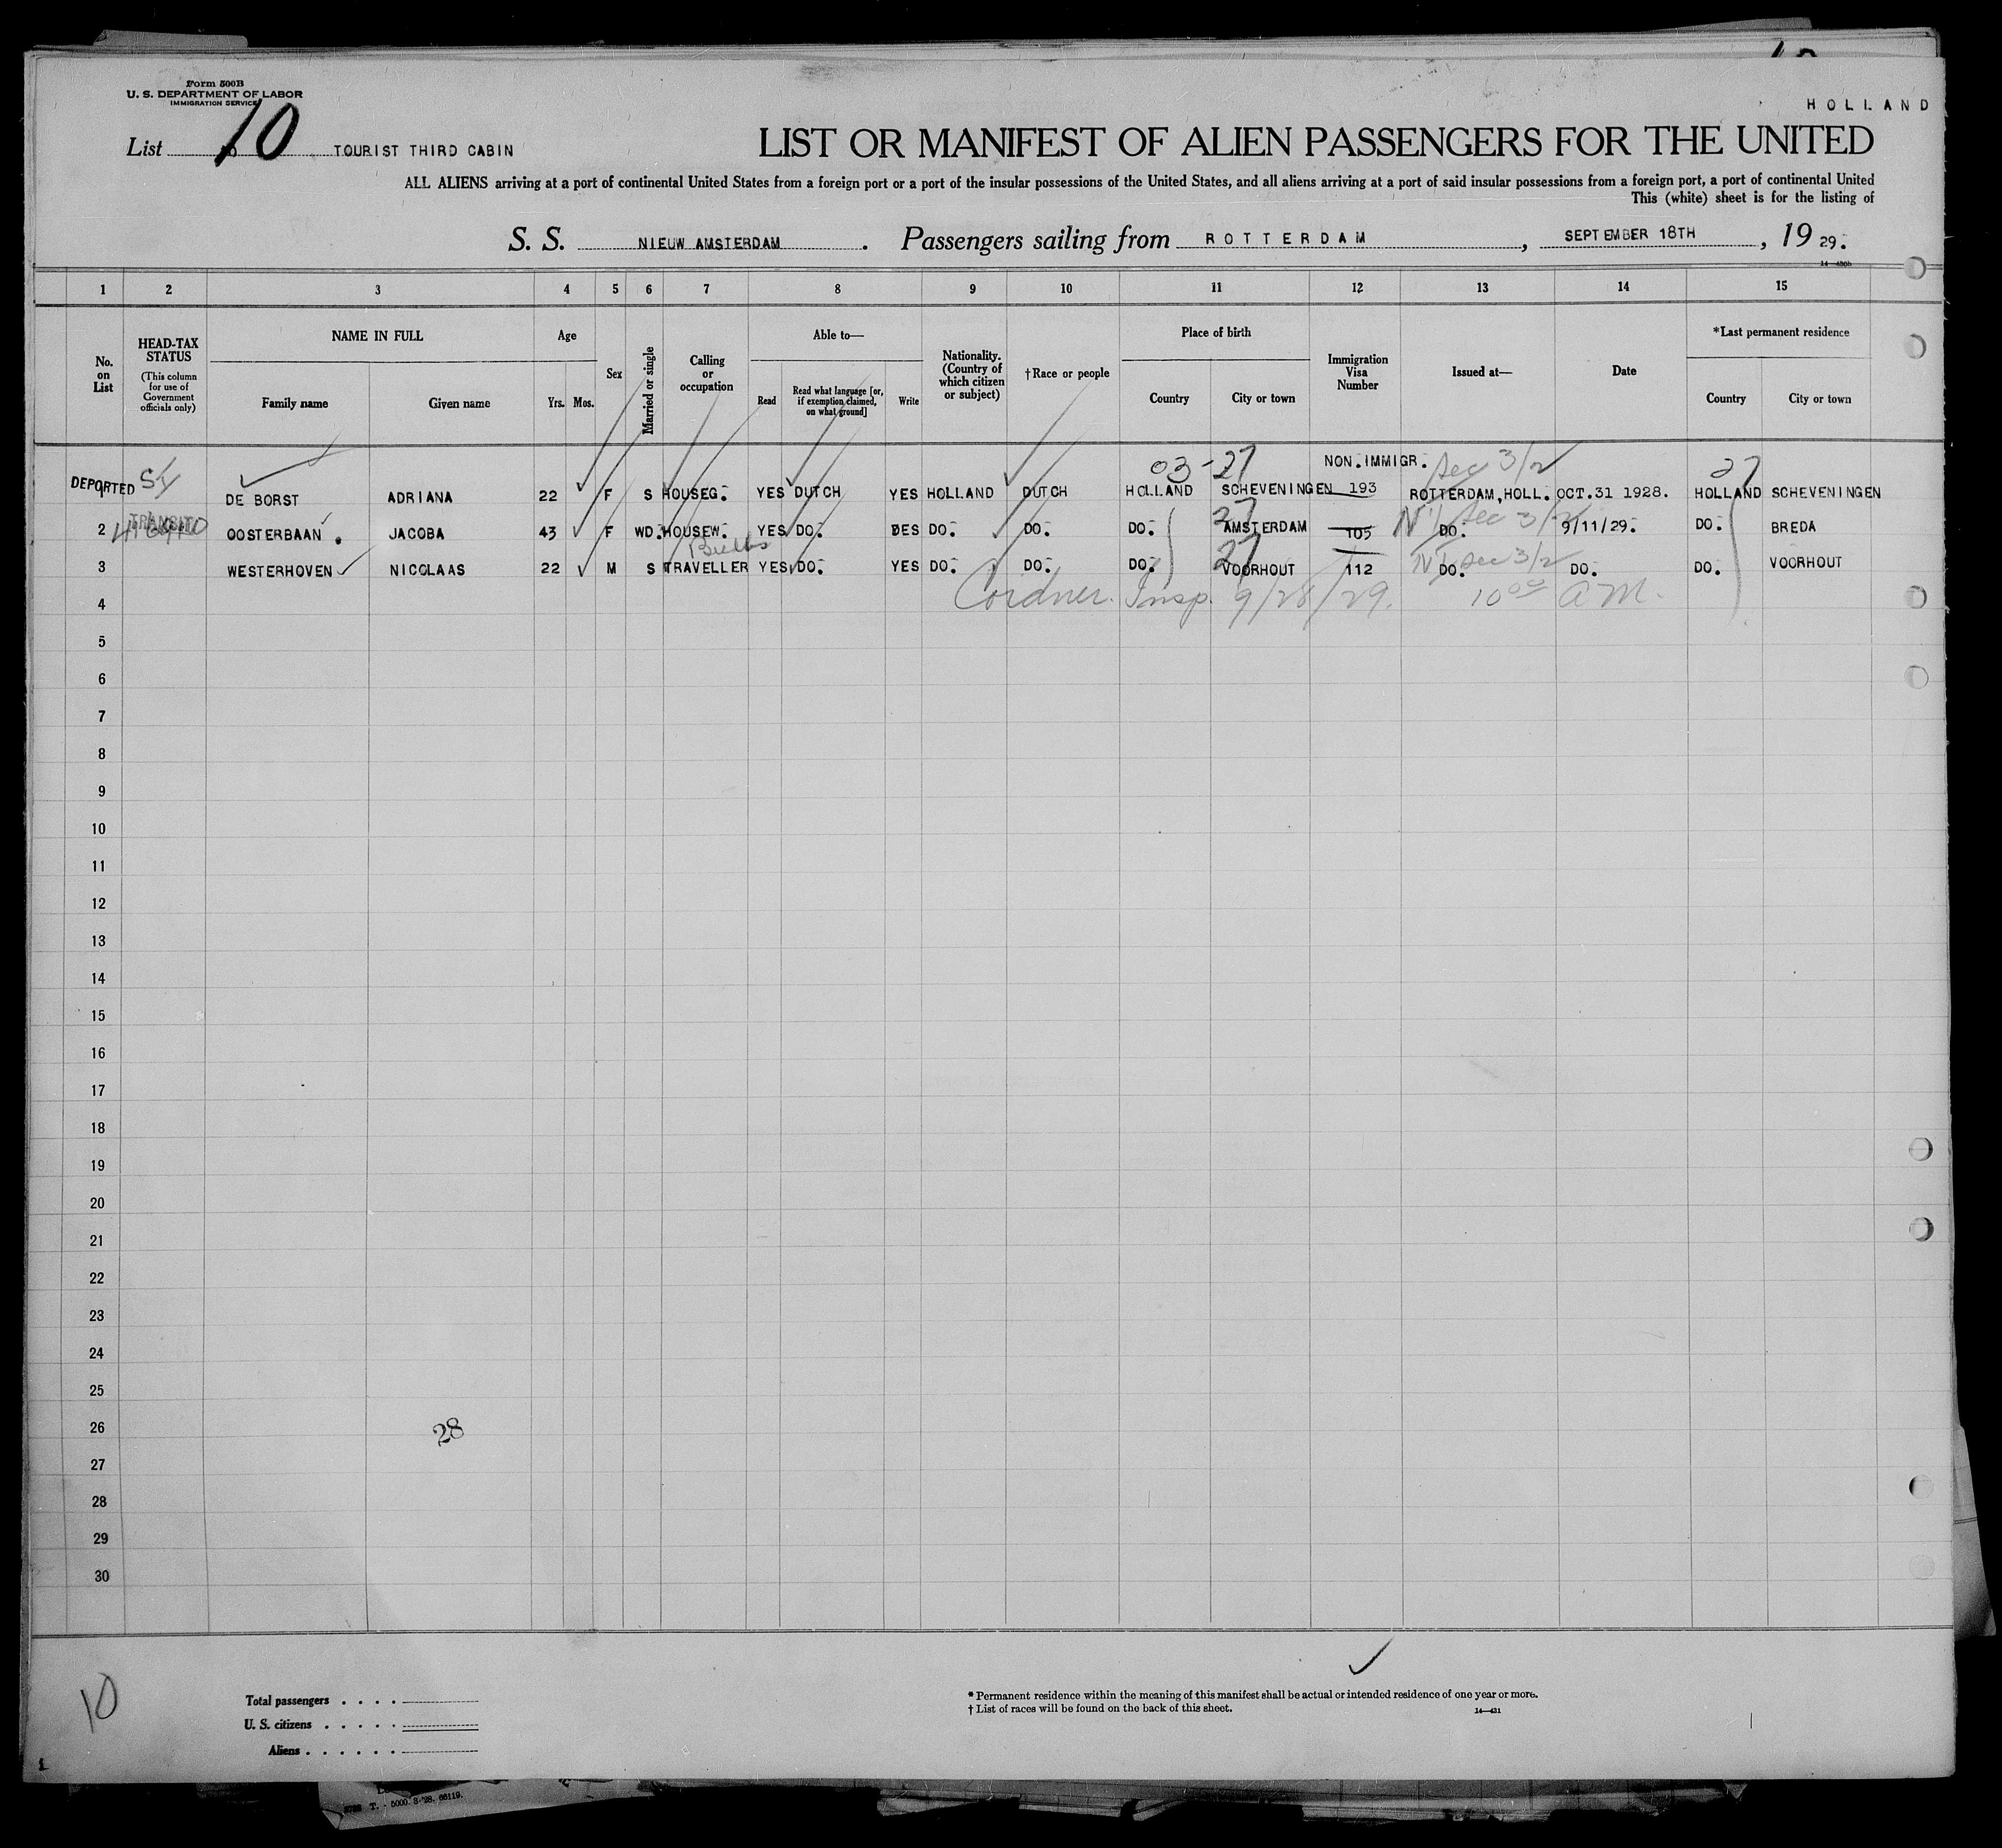 HOLLAND
Form 500B
U. S. DEPARTMENT OF LABOR
IMMIGRATION SERVICE
List 10 TOURIST THIRD CABIN
LIST OR MANIFEST OF ALIEN PASSENGERS FOR THE UNITED
ALL ALIENS arriving at a port of continental United States from a foreign port or a port of the insular possessions of the United States, and all aliens arriving at a port of said insular possessions from a foreign port, a port of continental United
This (white) sheet is for the listing of
S. S. NIEUW AMSTERDAM . Passengers sailing from ROTTERDAM , SEPTEMBER 18TH , 19 29.
14—430b
1 2 3 4 5 6 7 8 9 10 11 12 13 14 15
No. on List
HEAD-TAX STATUS
(This column for use of Government officials only)
NAME IN FULL
Family name Given name
Age
Yrs. Mos.
Sex
Married or single
Calling or occupation
Able to—
Read Read what language [or, if exemption claimed, on what ground] Write
Nationality. (Country of which citizen or subject)
†Race or people
Place of birth
Country City or town
Immigration Visa Number
Issued at—
Date
*Last permanent residence
Country City or town
03-27 NON.IMMIGR. Sec 3/2 27
DEPORTED SI DE BORST ADRIANA 22 F S HOUSEG. YES DUTCH YES HOLLAND DUTCH HOLLAND SCHEVENINGEN 193 ROTTERDAM,HOLL. OCT.31 1928. HOLLAND SCHEVENINGEN
2 TRANSIT OOSTERBAAN. JACOBA 43 F WD. HOUSEW. YES DO. DES DO. DO. DO. 27 AMSTERDAM 105 DO. Sec 3/2 9/11/29. DO. BREDA
Bulbs
3 WESTERHOVEN NICOLAAS 22 M S TRAVELLER YES DO. YES DO. DO. DO. 27 VOORHOUT 112 DO. Sec 3/2 DO. DO. VOORHOUT
4 Cordner. Insp. 9/28/29. 10 00 A.M.
5
6
7
8
9
10
11
12
13
14
15
16
17
18
19
20
21
22
23
24
25
26 28
27
28
29
30
10
Total passengers . . . .
U. S. citizens . . . . .
Aliens . . . . . .
* Permanent residence within the meaning of this manifest shall be actual or intended residence of one year or more.
† List of races will be found on the back of this sheet.
14—431
T. - 5000 3-'28. 66119.